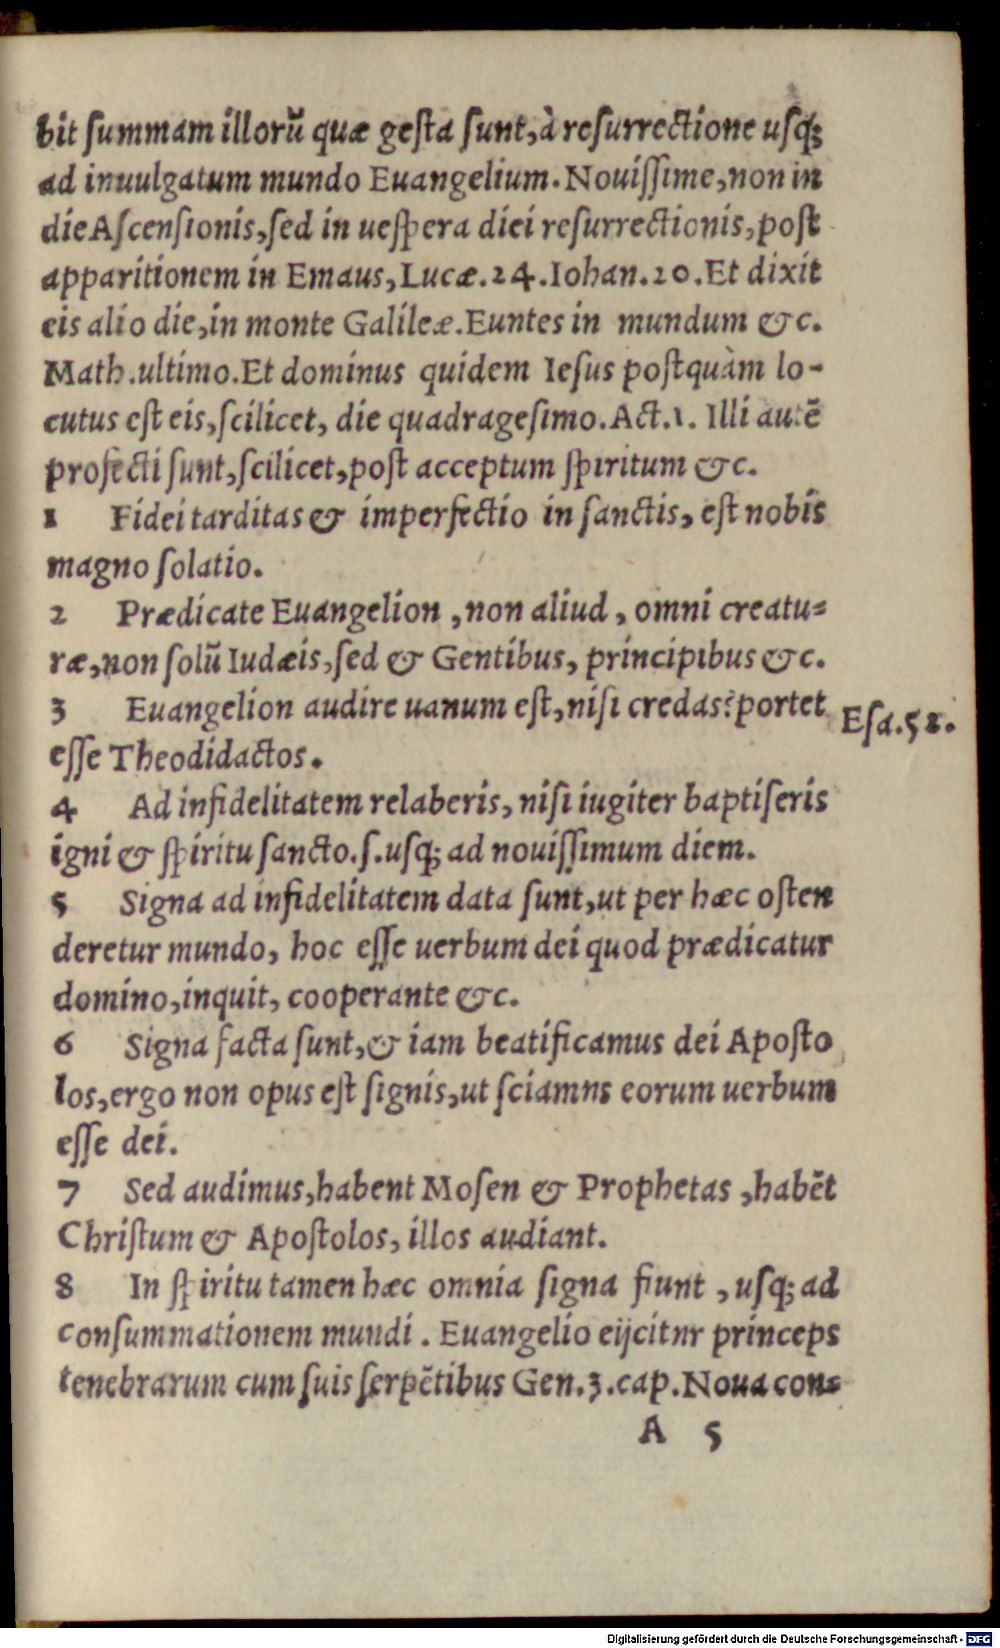 bit ſummam illorũ quæ geſta ſunt,à reſurrectione uſq;
ad inuulgatum mundo Euangelium. Nouiſſime,non in
die Aſcenſionis,ſed in ueſpera diei reſurrectionis,poſt
apparitionem in Emaus,Lucæ.24.Iohan.20.Et dixit
eis alio die,in monte Galileæ.Euntes in mundum &c.
Math.ultimo.Et dominus quidem Ieſus poſtquàm lo-
cutus eſt eis,ſcilicet, die quadrageſimo.Act.1. Illi autẽ
profecti ſunt,ſcilicet,poſt acceptum ſpiritum &c.
1 Fidei tarditas & imperfectio in ſanctis, eſt nobis
magno ſolatio.
2 Prædicate Euangelion ,non aliud , omni creatu-
ræ,non ſolũ Iudæis,ſed & Gentibus, principibus &c.
3 Euangelion audire uanum eſt,niſi credas: portet
Eſa.52.
eſſe Theodidactos.
4 Ad infidelitatem relaberis, niſi iugiter baptiſeris
igni & ſpiritu ſancto.ſ.uſq; ad nouiſſimum diem.
5 Signa ad infidelitatem data ſunt,ut per hæc oſten
deretur mundo, hoc eſſe uerbum dei quod prædicatur
domino,inquit, cooperante &c.
6 Signa facta ſunt,& iam beatificamus dei Apoſto
los,ergo non opus eſt ſignis,ut ſciamns eorum uerbum
eſſe dei.
7 Sed audimus,habent Moſen & Prophetas ,habẽt
Chriſtum & Apoſtolos, illos audiant.
8 In ſpiritu tamen hæc omnia ſigna fiunt , uſq; ad
conſummationem mundi . Euangelio eijcitnr princeps
tenebrarum cum ſuis ſerpẽtibus Gen.3.cap.Noua con-
A 5
Digitalisierung gefördert durch die Deutsche Forschungsgemeinschaft - DFG